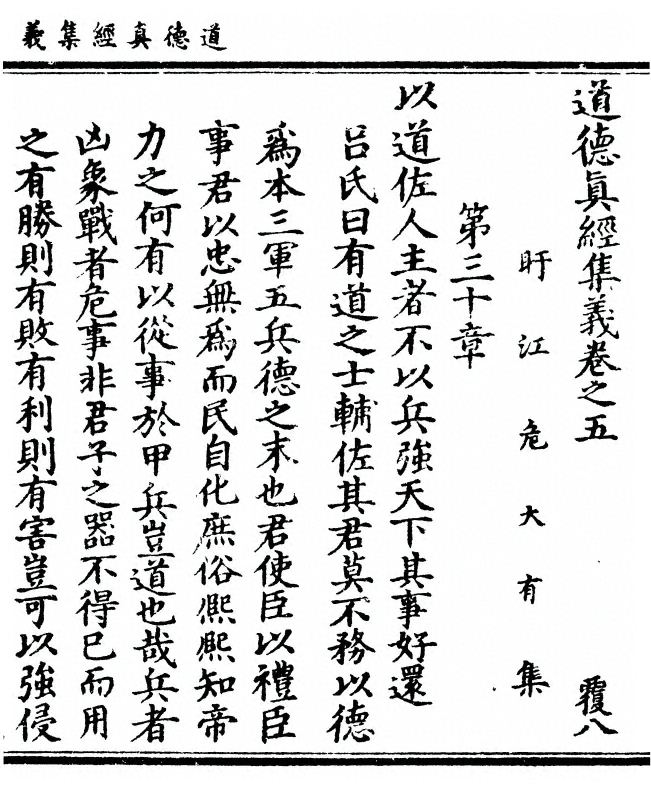 道德真經集義
道德眞經集義卷之五 覆八
盱江危大有集
第三十章
以道佐人主者不以兵強天下其事好還
呂氏曰有道之士輔佐其君莫不務以德
爲本三軍五兵德之末也君使臣以禮臣
事君以忠無爲而民自化庶俗熈熈知帝
力之何有以從事於甲兵豈道也哉兵者
凶象戰者危事非君子之器不得巳而用
之有勝則有敗有利則有害豈可以強侵